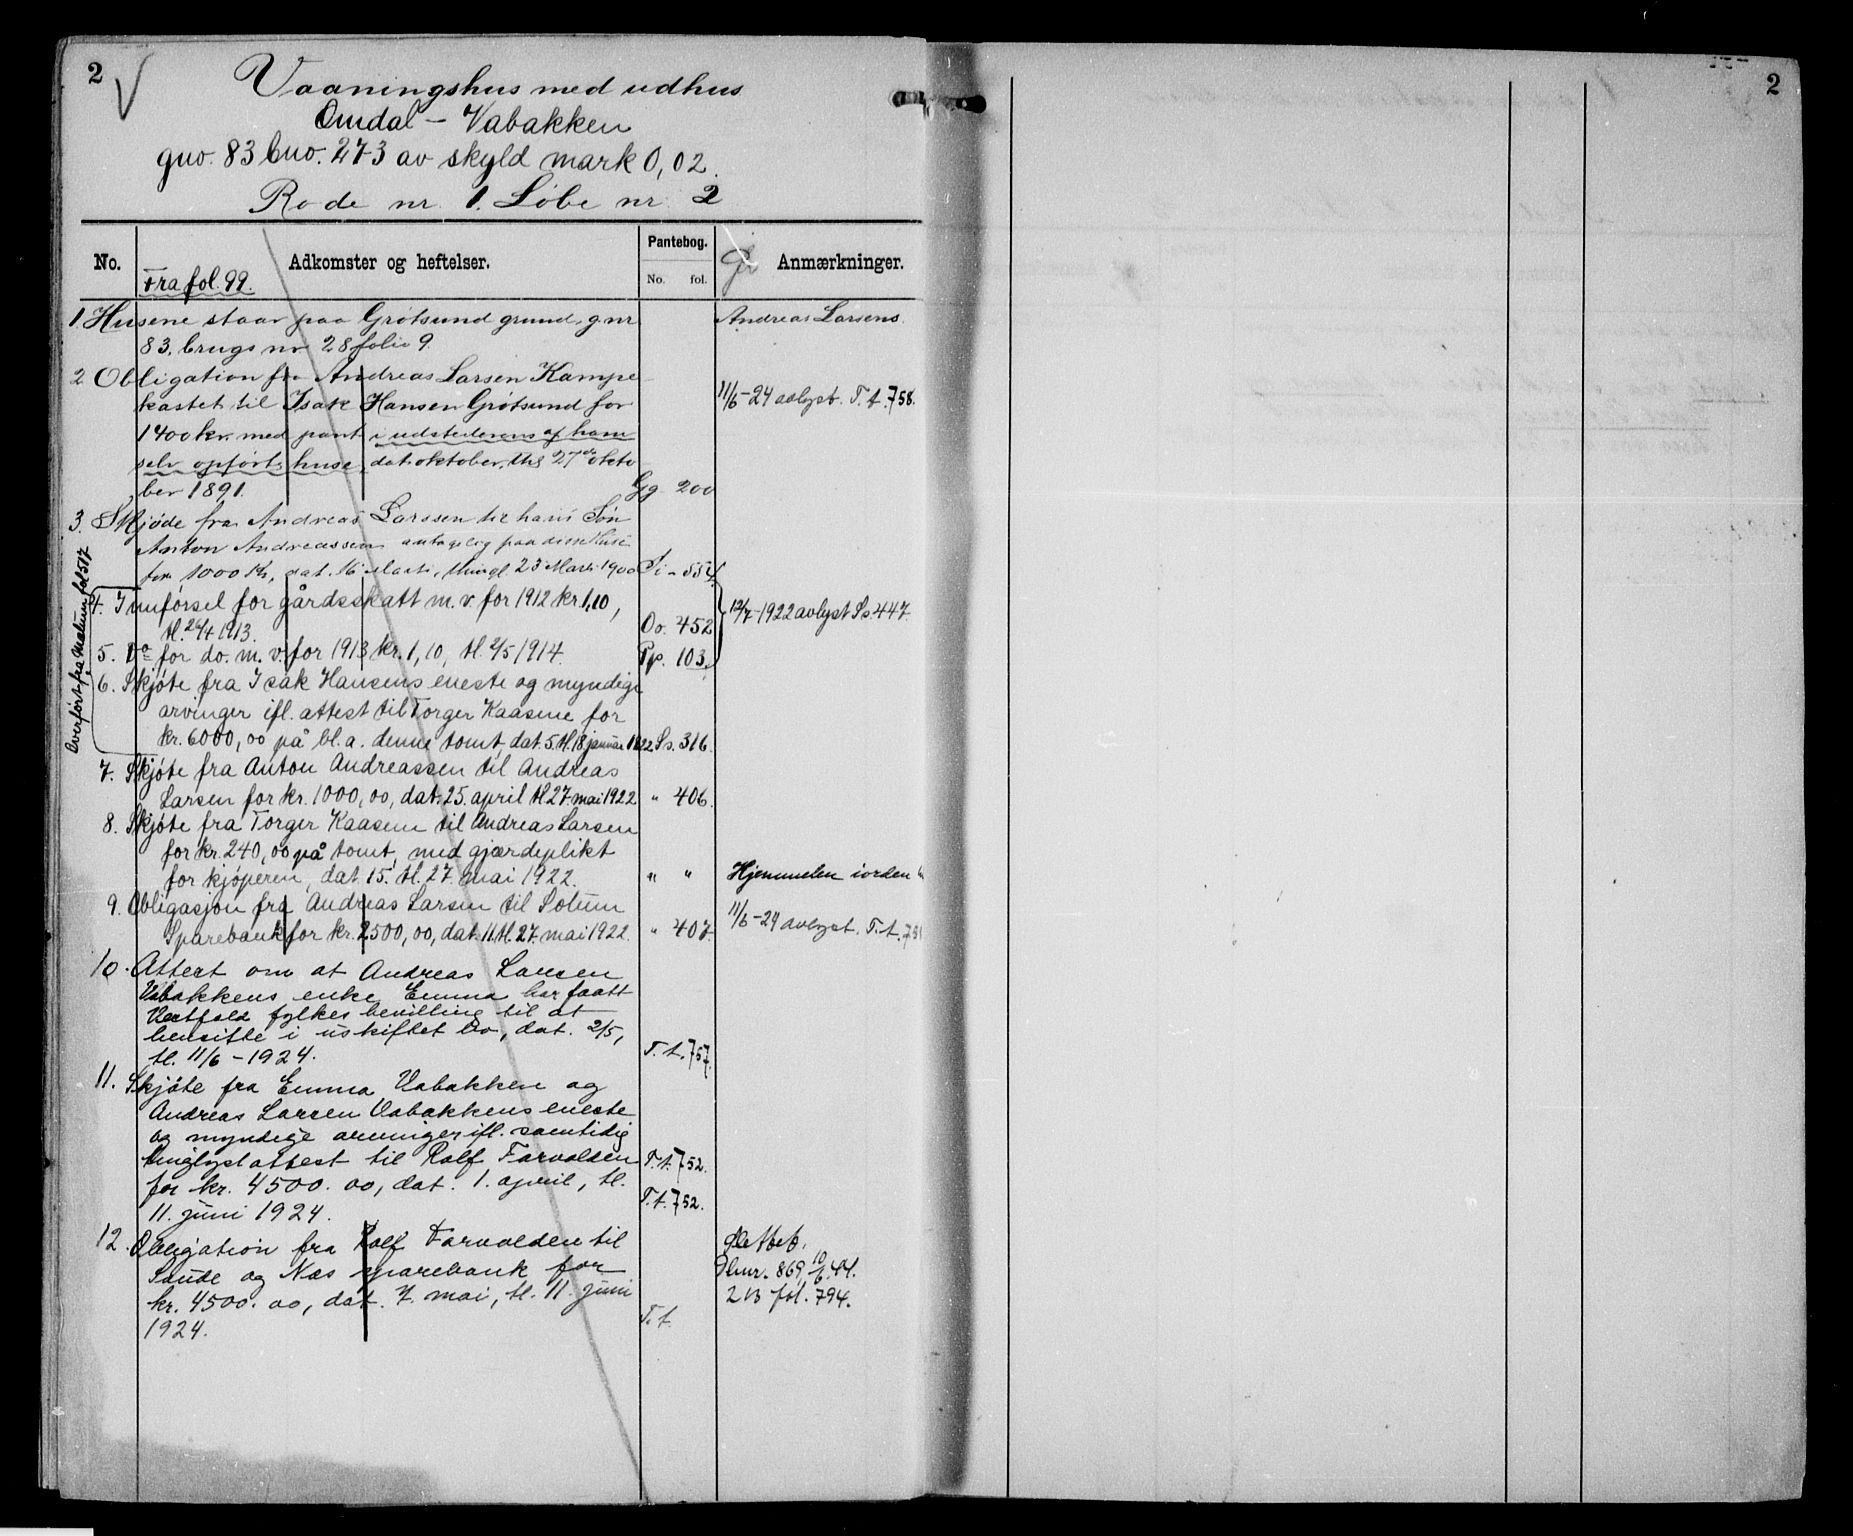 2
Vaaningshus med udhus
Omdal - Vabakken
gno. 83 bno. 273 av skyld mark 0,02.
Rode nr. 1. Löbe nr. 2
No. Adkomster og heftelser. Pantebog. No. fol. Anmærkninger.
Fra fol. 99.
1 Husene staar paa Grötsund grund, gnr Andreas Larsens
83, brugs nr 28 folio 9.
2 Obligation fra Andreas Larsen Kampe
kastet til Isak Hansen Grötsund for 11/6-24 avlyst. T.t. 758.
1400 kr. med pant i udstederens af ham
selv opförte huse, dat. oktober, thg 27de okto
ber 1891. Gg 200
3. Skjöde fra Andreas Larssen til hans Sön
Anton Andreassen antagelig paa disse Huse
for 1000 Kr, dat. 16 Marts, thingl. 23 Marts 1900 Ii - 554.
Overfört fra Matrum fol 517
4. Innförsel for gårdsskatt m.v. for 1912 kr. 1,10,
tl. 26/4 1913. Oo. 452 12/7-1922 avlyst Ss. 447.
5. Do for do. m.v. for 1913 kr. 1,10, tl. 2/5 1914. Pp. 103.
6. Skjöte fra Isak Hansens eneste og myndige
arvinger ifl. attest til Torger Kaasene for
kr. 6000,00 på bl.a. denne tomt, dat. 5. tl. 18 januar 1922 Ss. 316.
7. Skjöte fra Anton Andreassen til Andreas
Larsen for kr. 1000,00, dat. 25. april tl 27. mai 1922 " 406.
8. Skjöte fra Torger Kaasene til Andreas Larsen
for kr. 240,00 på tomt, med gjærdeplikt
for kjöperen, dat. 15. tl. 27. mai 1922. " " Hjemmelen iorden
9. Obligasjon fra Andreas Larsen til Solum
Sparebank for kr. 2500,00, dat. 11. tl. 27. mai 1922. " 407. 11/6-24 avlyst. T.t. 758
10. Attest om at Andreas Larsen
Vabakkens enke Emma har faatt
Vestfold fylkes bevilling til at
hensitte i uskiftet bo, dat. 2/5,
tl. 11/6-1924. T.t. 757.
11. Skjöte fra Emma Vabakken og
Andreas Larsen Vabakkens eneste
og myndige arvinger ifl. samtidig
tinglyst attest til Rolf Farvolden T.t. 752.
for kr. 4500.00, dat. 1. april, tl. T.t. 752.
11. juni 1924.
12. Obligation fra Rolf Farvolden til Slettet.
Saude og Nes sparebank for Dbnr. 869, 10/6.44.
kr. 4500.00, dat. 7. mai, tl. 11. juni 2 B fol. 794.
1924. T.t.
2